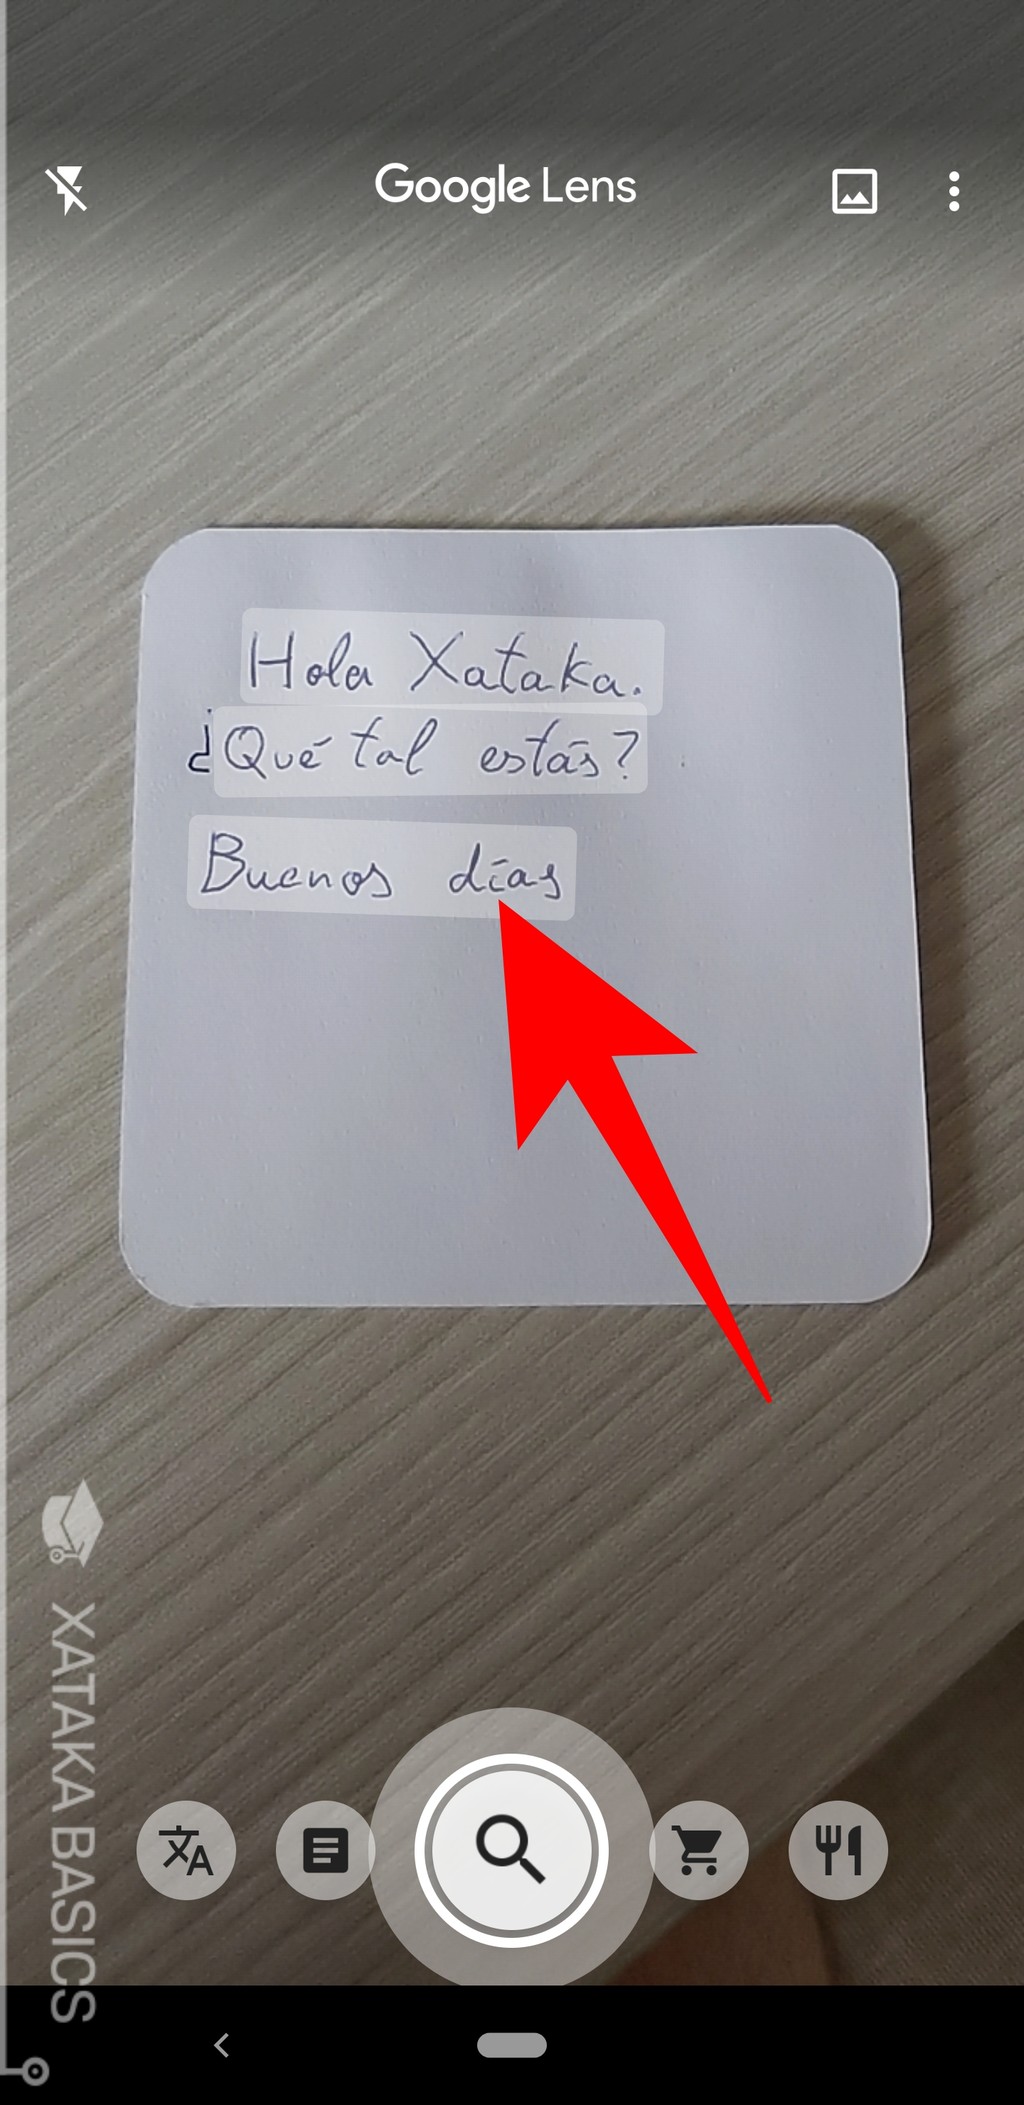 Google Lens
Hola Xataka.
¿Qué tal estás?
Buenos días
XATAKA BASICS